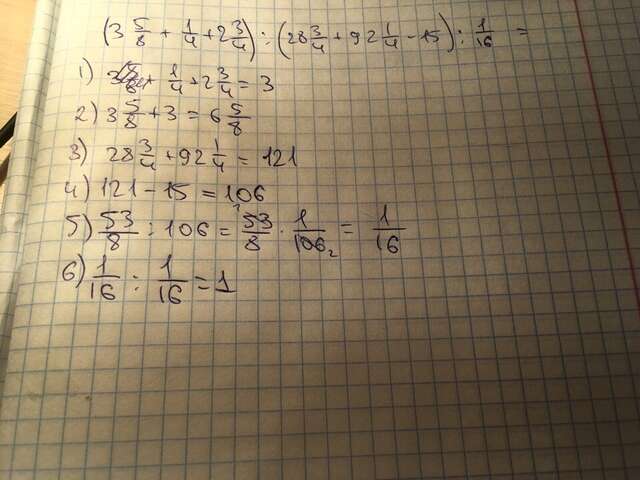 (3 5/8 + 1/4 + 2 3/4) : (28 3/4 + 92 1/4 - 15) : 1/16 =
1) 1/4 + 2 3/4 = 3
2) 3 5/8 + 3 = 6 5/8
3) 28 3/4 + 92 1/4 = 121
4) 121 - 15 = 106
5) 53/8 : 106 = 53/8 · 1/106 2 = 1/16
6) 1/16 : 1/16 = 1